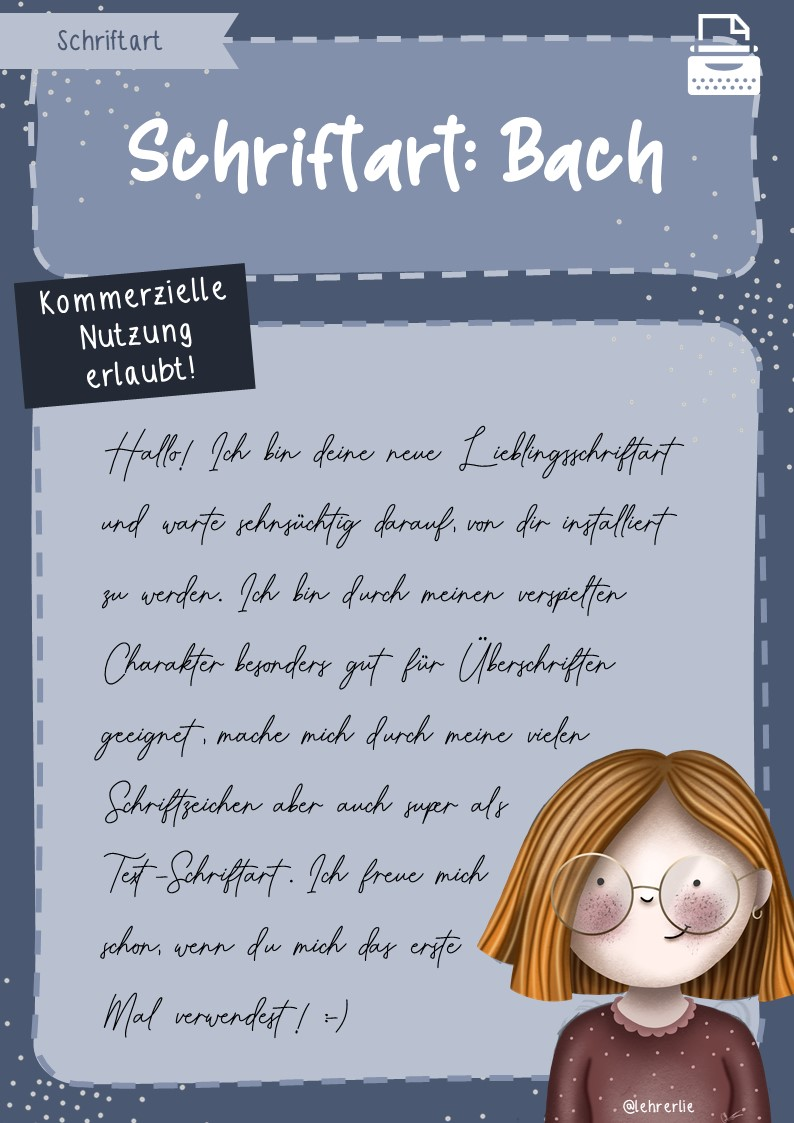 Schriftart
Schriftart: Bach
Kommerzielle
Nutzung
erlaubt!
Hallo! Ich bin deine neue Lieblingsschriftart
und warte sehnsüchtig darauf, von dir installiert
zu werden. Ich bin durch meinen verspielten
Charakter besonders gut für Überschriften
geeignet, mache mich durch meine vielen
Schriftzeichen aber auch super als
Text-Schriftart. Ich freue mich
schon, wenn du mich das erste
Mal verwendest! :-)
@lehrerlie